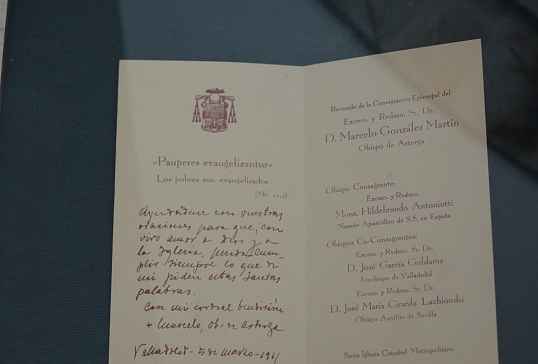 «Pauperes evangelizantur»
Los pobres son evangelizados
(Mt. 11,5)
Ayudadme con vuestras
oraciones para que, con
vivo amor a Dios y a
la Iglesia, pueda cum-
plir siempre lo que de
mi piden estas santas
palabras.
Con mi cordial bendición
+ Marcelo, ob. de Astorga
Valladolid - 5 de marzo - 1961
Recuerdo de la Consagración Episcopal del
Excmo. y Redmo. Sr. Dr.
D. Marcelo González Martín
Obispo de Astorga
Obispo Consagrante:
Excmo. y Redmo.
Mons. Hildebrando Antoniutti
Nuncio Apostólico de S. S. en España
Obispos Co-Consagrantes:
Excmo. y Redmo. Sr. Dr.
D. José García Goldaraz
Arzobispo de Valladolid
Excmo. y Redmo. Sr. Dr.
D. José María Cirarda Lachiondo
Obispo Auxiliar de Sevilla
Santa Iglesia Catedral Metropolitana